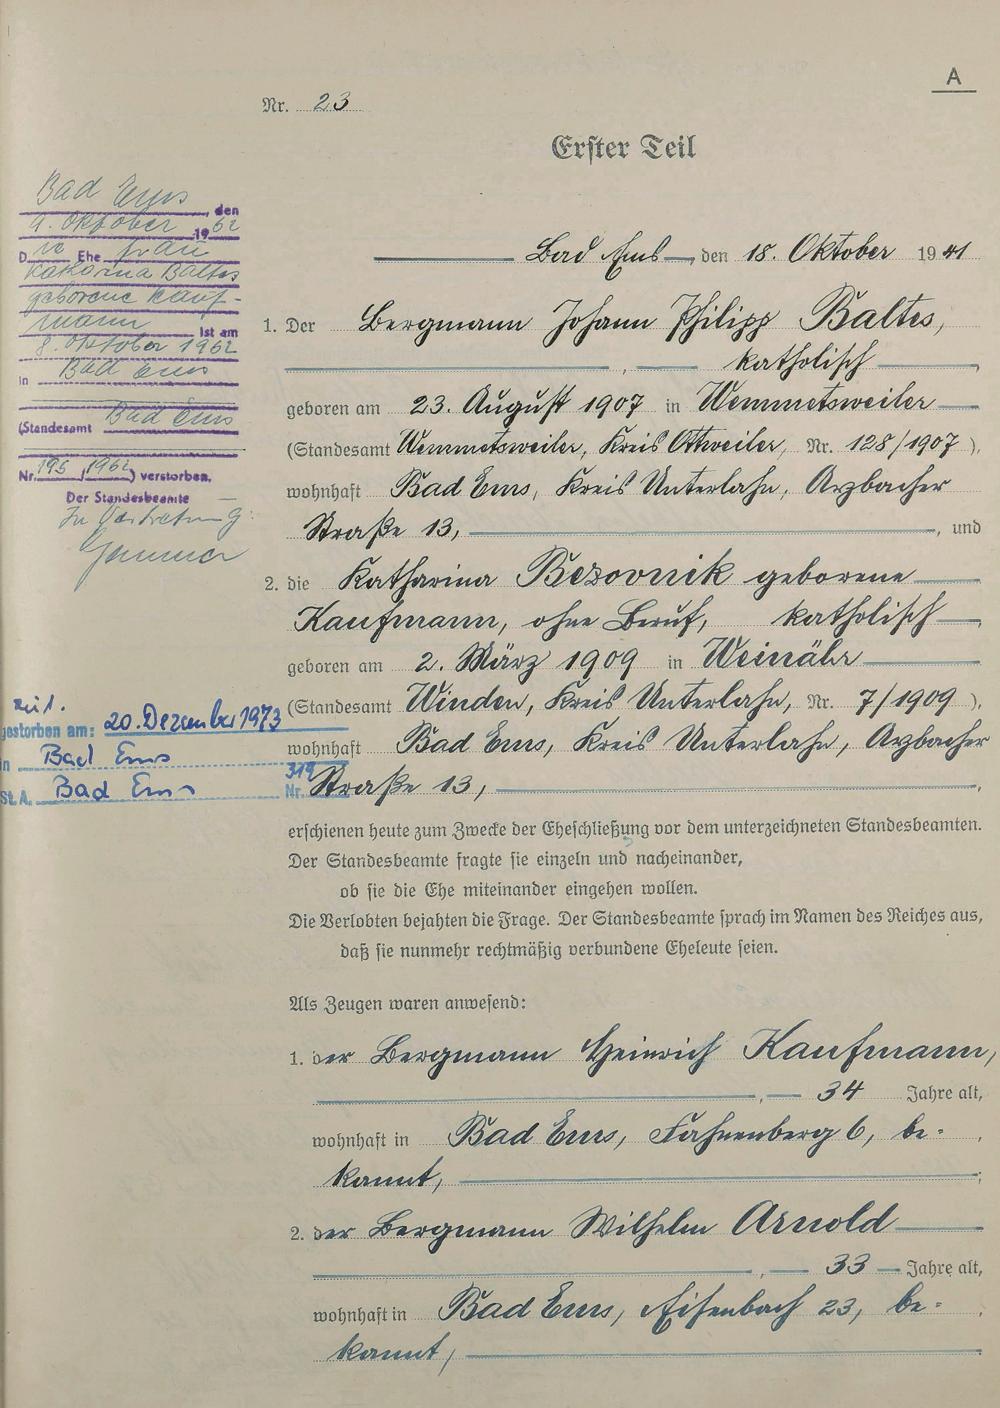 A
Nr. 23
Erster Teil
Bad Ems, den
9. Oktober 1962
Die Ehefrau
Katharina Baltes
geborene Kauf-
mann ist am
8. Oktober 1962
in Bad Ems
(Standesamt Bad Ems
Nr. 195/1962) verstorben.
Der Standesbeamte
In Vertretung:
Bad Ems, den 18. Oktober 1941
1. Der Bergmann Johann Philipp Baltes,
katholisch
geboren am 23. August 1907 in Wemmetsweiler
(Standesamt Wemmetsweiler, Kreis Ottweiler, Nr. 128/1907),
wohnhaft Bad Ems, Kreis Unterlahn, Arzbacher
Straße 13, und
2. die Katharina Bezovnik geborene
Kaufmann, ohne Beruf, katholisch
geboren am 2. März 1909 in Weinähr
(Standesamt Winden, Kreis Unterlahn, Nr. 7/1909),
wohnhaft Bad Ems, Kreis Unterlahn, Arzbacher
Straße 13,
gestorben am: 20. Dezember 1973
in Bad Ems
St. A. Bad Ems Nr. 319
erschienen heute zum Zwecke der Eheschließung vor dem unterzeichneten Standesbeamten.
Der Standesbeamte fragte sie einzeln und nacheinander,
ob sie die Ehe miteinander eingehen wollen.
Die Verlobten bejahten die Frage. Der Standesbeamte sprach im Namen des Reiches aus,
daß sie nunmehr rechtmäßig verbundene Eheleute seien.
Als Zeugen waren anwesend:
1. der Bergmann Heinrich Kaufmann,
34 Jahre alt,
wohnhaft in Bad Ems, Fahnenberg 6, be-
kannt,
2. der Bergmann Wilhelm Arnold
33 Jahre alt,
wohnhaft in Bad Ems, Eisenbach 23, be-
kannt,